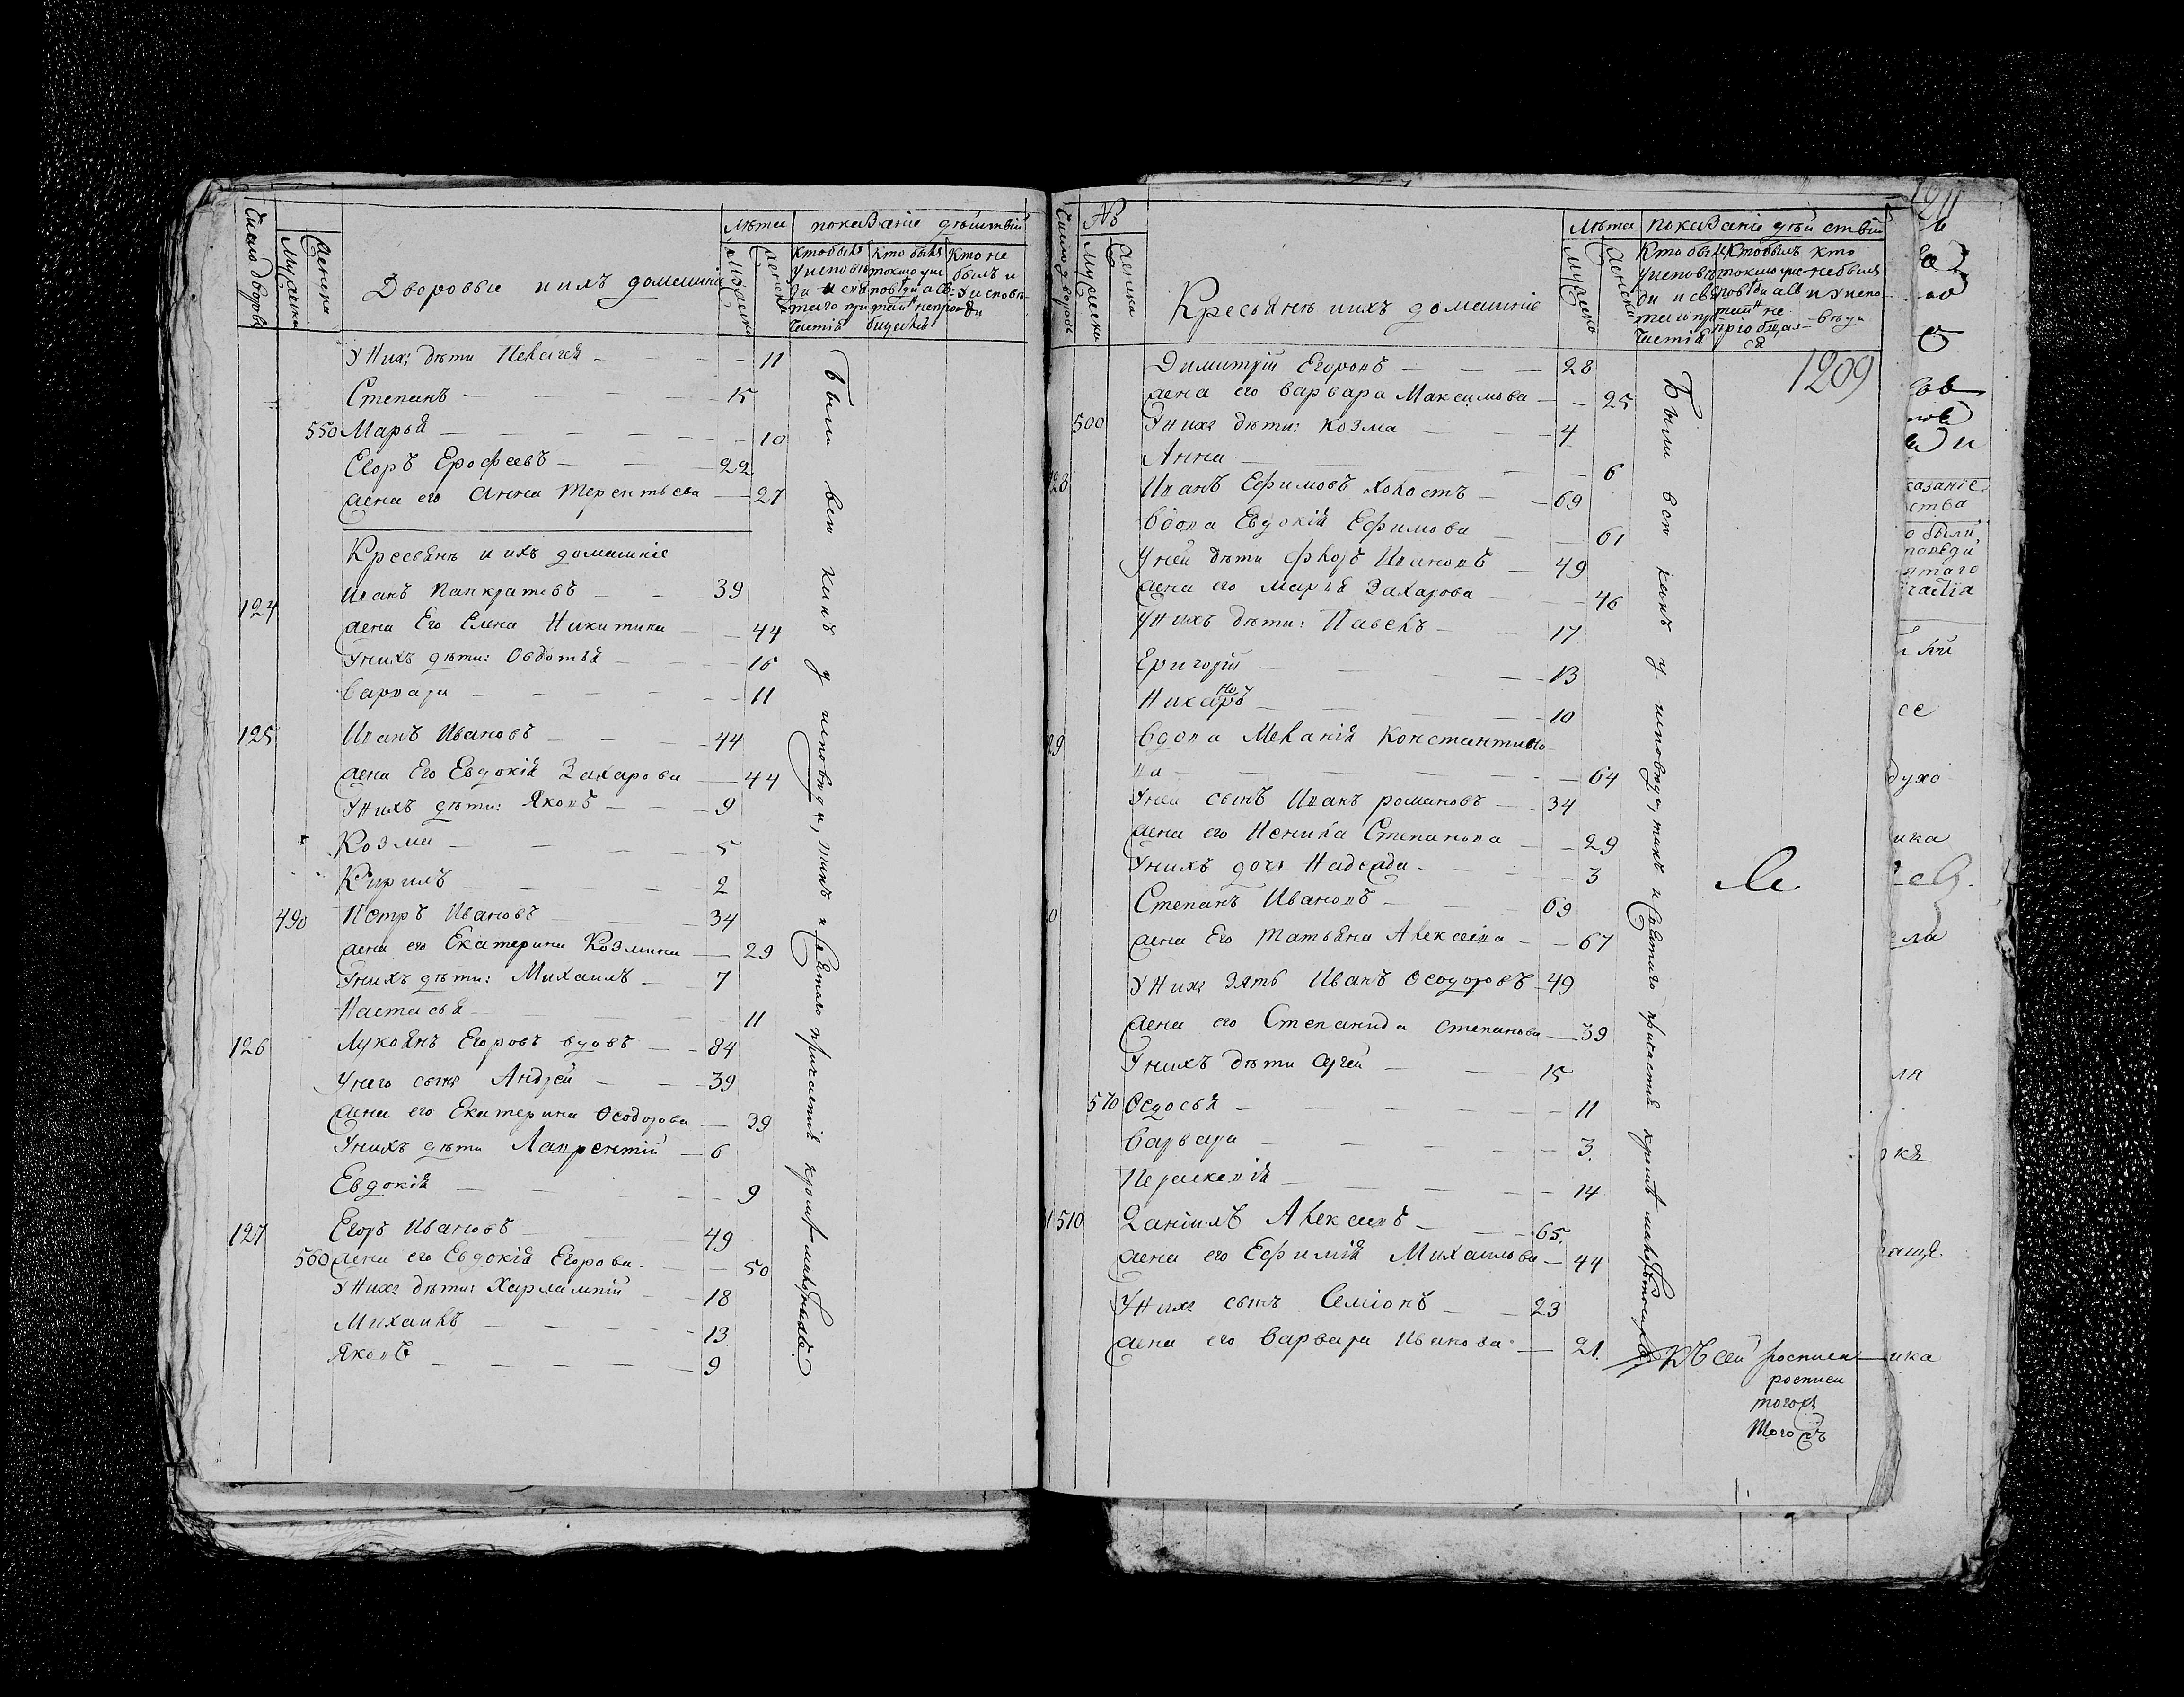 Число дворовъ
Мужска
Женска
Дворовые и ихъ домашніе
Лѣта
показаніе дѣйствій
Мужска
Женска
кто былъ
у исповѣ
ди и свя
таго при
частія
кто былъ
токмо у ис
повѣди а св:
таинъ непріоб
щился
кто не
былъ и
у исповѣ
ди
У Нихъ дѣти Пелагея 11
Степанъ 15
550 Марья 10
Егоръ Ерофеевъ 22
жена его Анна Терентьева 27
Кресьянѣ и ихъ домашніе
124 Иванъ Панкратовъ 39
жена Его Елена Никитина 44
У нихъ дѣти: Овдотья 16
Варвара 11
125 Иванъ Ивановъ 44
жена Его Евдокія Захарова 44
У Нихъ дѣти: Яковъ 9
Козма 5
Кирилъ 2
490 Петръ Ивановъ 34
жена его Екатерина Козмина 29
У нихъ дѣти: Михаилъ 7
Настасья 11
126 Лукоянъ Егоровъ вдовъ 84
У него сынъ Андрей 39
жена его Екатерина Ѳеодорова 39
У нихъ дѣти Лаврентій 6
Евдокія 9
127 Егоръ Ивановъ 49
560 жена его Евдокія Егорова 50
У Нихъ дѣти: Харлампій 18
Михаилъ 13
Яковъ 9
Были всѣ какъ у исповѣди, такъ и Святаго причастія кромѣ малолѣтныхъ.
Число дворовъ
Мужска
Женска
Кресьянѣ и ихъ домашніе
Лѣта
показаніе дѣйствій
Мужска
Женска
Кто былъ
у исповѣ
ди и свя
таго при
частія
Кто былъ
токмо у ис
повѣди а св
таинъ не
пріобщил
ся
кто
не былъ
и у испо
вѣди
1209
Димитрій Егоровъ 28
жена его Варвара Максимова 25
500 У нихъ дѣти: Козма 4
Анна 6
128 Иванъ Ефимовъ холостъ 69
Вдова Евдокія Ефимова 61
У ней дѣти Флоръ Ивановъ 49
жена его Марья Захарова 46
У нихъ дѣти: Павелъ 17
Григорій 13
Никаноръ 10
29 Вдова Меланія Константино
ва 64
У ней сынъ Иванъ романовъ 34
жена его Степанова 29
У нихъ дочь Надежда 3
0 Степанъ Ивановъ 69
жена Его Татьяна Алексѣева 67
У Нихъ Зять Иванъ Ѳеодоровъ 49
жена его Степанида Степанова 39
У нихъ дѣти Сергей 15
570 Ѳедосья 11
Варвара 3
Пераскевія 14
510 Даніилъ Алексеевъ 65
жена его Ефимія Михаилова 44
У Нихъ сынъ Семіонъ 23
жена его Варвара Иванова 21
Были всѣ какъ у исповѣди, такъ и Святаго причастія кромѣ
Ле
Къ сей росписи
росписи
тогожъ
Тогожъ
1211
казаніе
ства
о были
повѣди
ятаго
частія
духо
ика
ла
ика